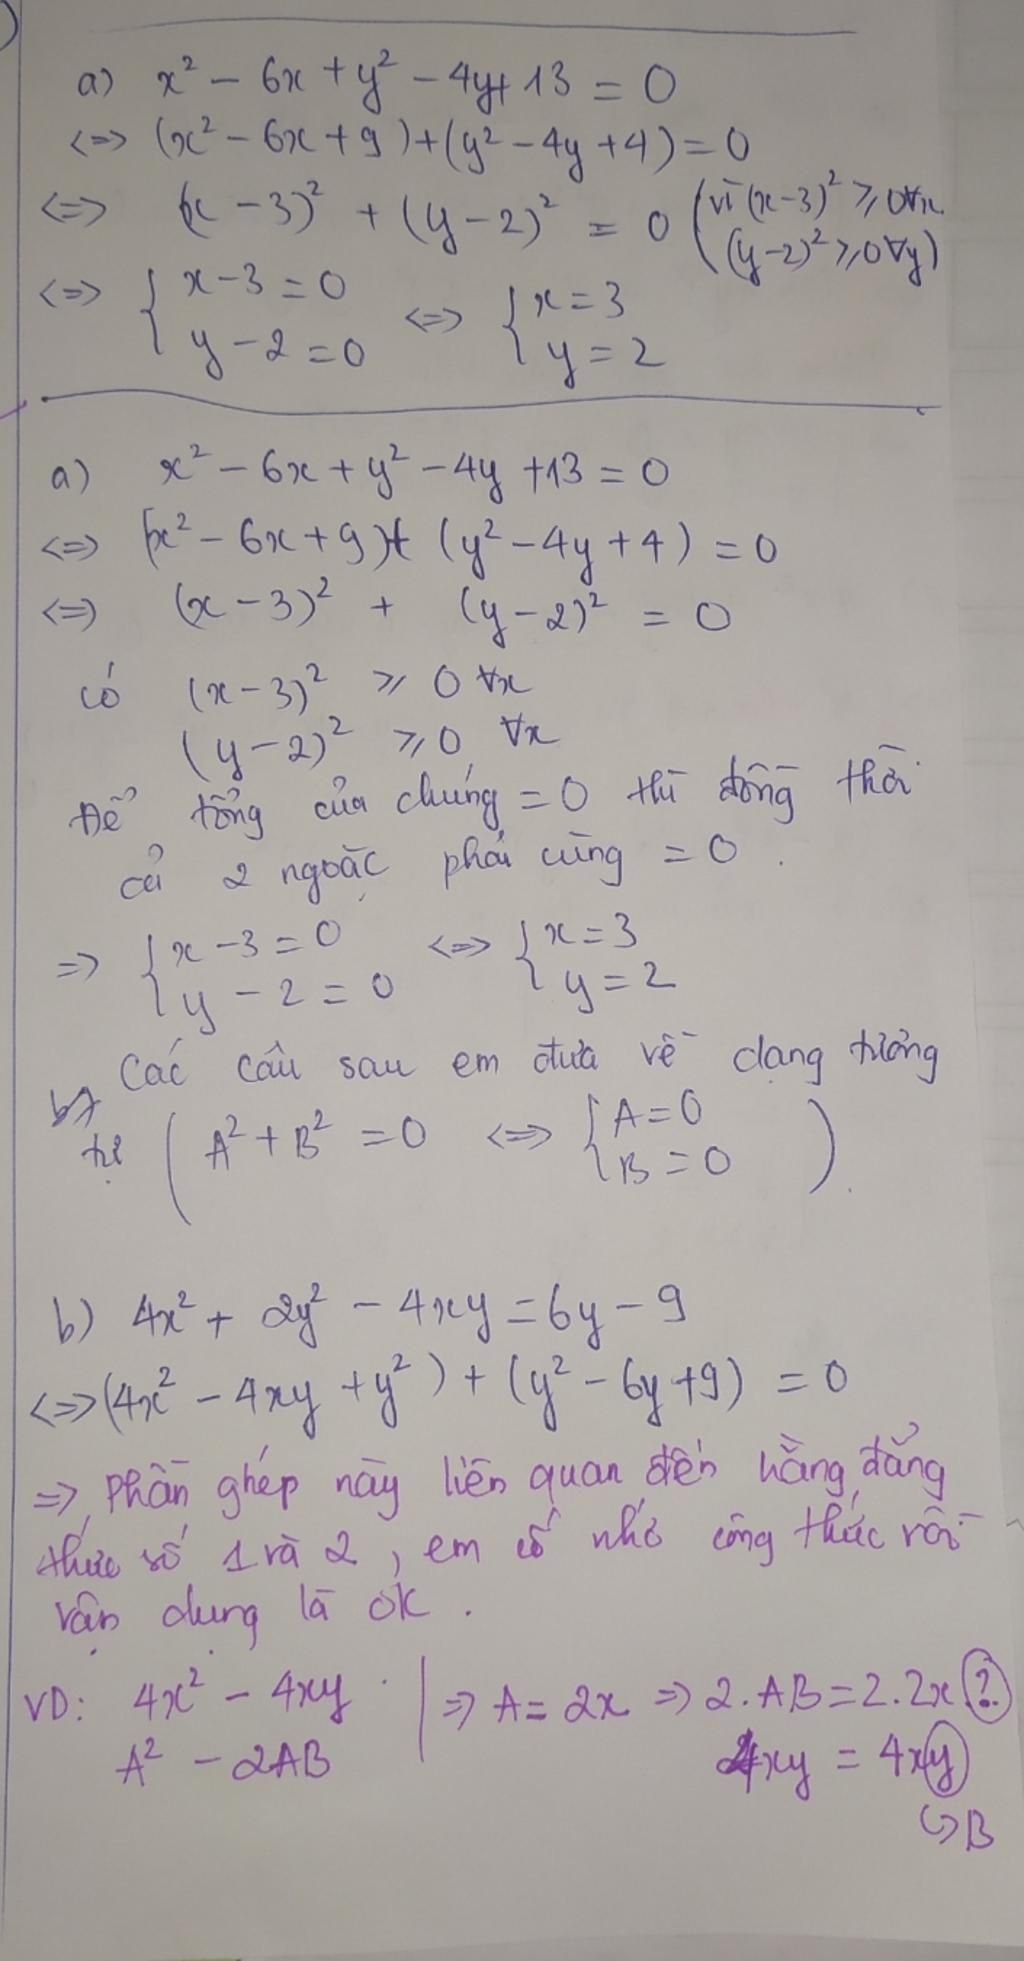 a) x² - 6x + y² - 4y + 13 = 0
<=> (x² - 6x + 9) + (y² - 4y + 4) = 0
<=> (x - 3)² + (y - 2)² = 0 (vì (x-3)² ⩾ 0 ∀x
(y-2)² ⩾ 0 ∀y)
<=> { x - 3 = 0 <=> { x = 3
y - 2 = 0 y = 2
a) x² - 6x + y² - 4y + 13 = 0
<=> (x² - 6x + 9) + (y² - 4y + 4) = 0
<=> (x - 3)² + (y - 2)² = 0
có (x - 3)² ⩾ 0 ∀x
(y - 2)² ⩾ 0 ∀x
Để tổng của chúng = 0 thì đồng thời
cả 2 ngoặc phải cùng = 0.
=> { x - 3 = 0 <=> { x = 3
y - 2 = 0 y = 2
Các câu sau em đưa về dạng tương
b)
tự ( A² + B² = 0 <=> { A = 0
B = 0 ).
b) 4x² + 2y² - 4xy = 6y - 9
<=> (4x² - 4xy + y²) + (y² - 6y + 9) = 0
=> Phần ghép này liên quan đến hằng đẳng
thức số 1 và 2, em cố nhớ công thức rồi
vận dụng là ok.
VD: 4x² - 4xy | => A = 2x => 2.AB = 2.2x ?
A² - 2AB 4xy = 4xy
↪ B